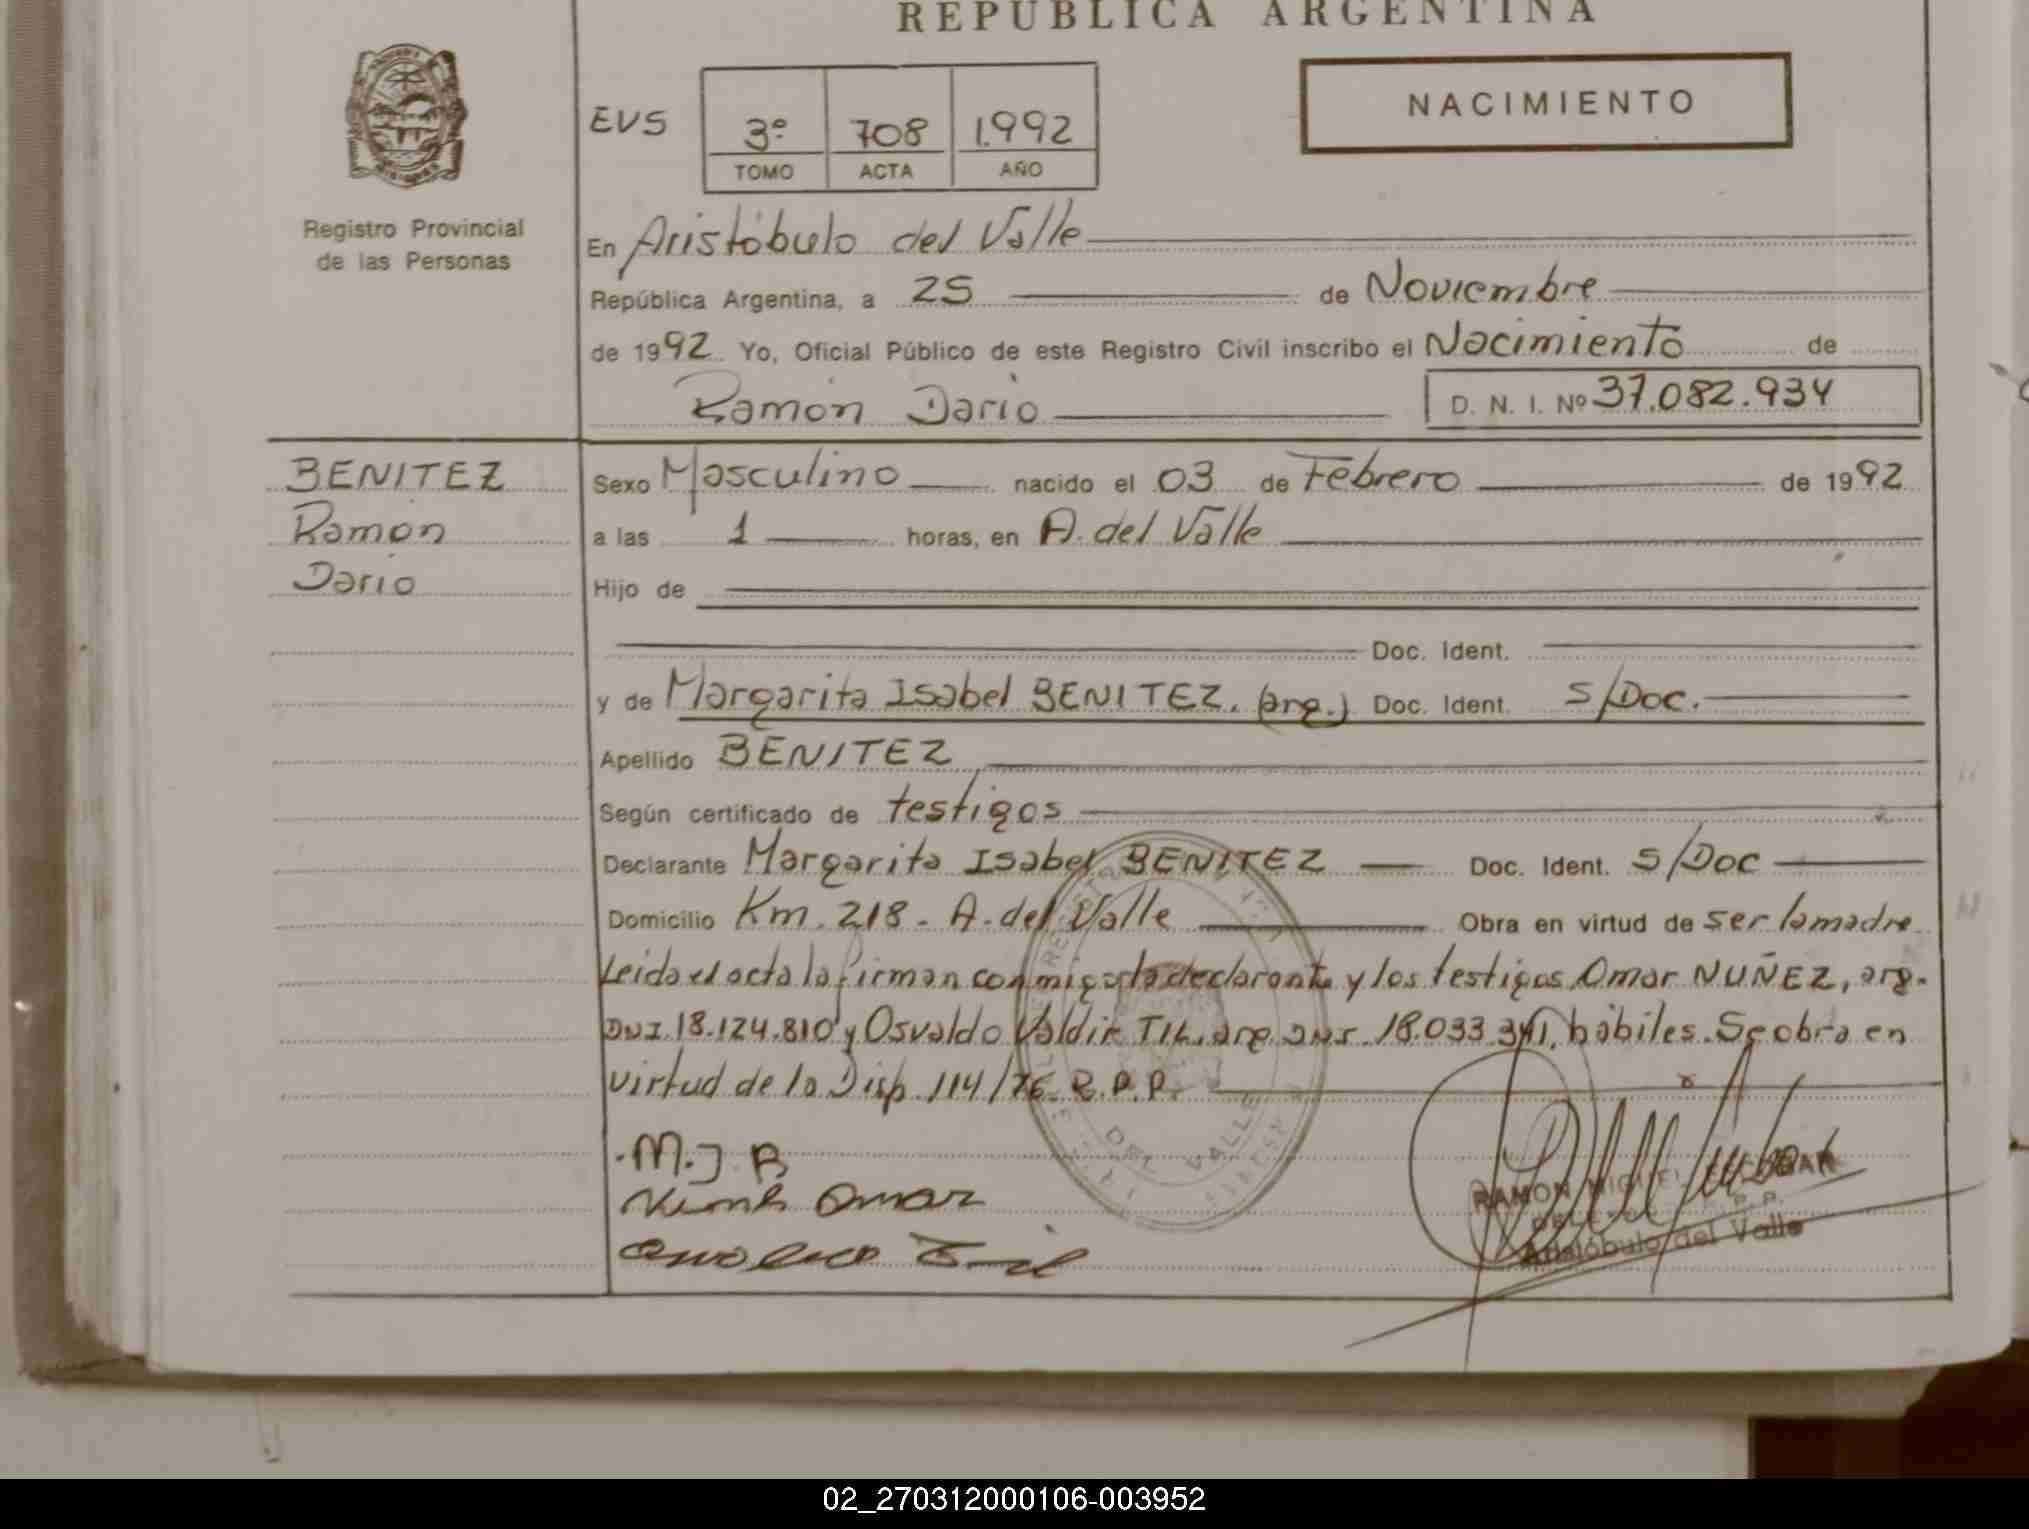 REPUBLICA ARGENTINA
NACIMIENTO
EVS 3º 708 1.992
TOMO ACTA AÑO
Registro Provincial
de las Personas
En Aristóbulo del Valle
República Argentina, a 25 de Noviembre
de 1992 Yo, Oficial Público de este Registro Civil inscribo el Nacimiento de
Ramón Dario D. N. I. Nº 37.082.934
BENITEZ
Ramón
Dario
Sexo Masculino nacido el 03 de Febrero de 1992
a las 1 horas, en A. del Valle
Hijo de
Doc. Ident.
y de Margarita Isabel BENITEZ. (arg.) Doc. Ident. S/Doc.
Apellido BENITEZ
Según certificado de testigos
Declarante Margarita Isabel BENITEZ Doc. Ident. S/Doc
Domicilio Km. 218 - A. del Valle Obra en virtud de ser la madre
Leida el acta la firman conmigo la declarante y los testigos Omar NUÑEZ, arg.
DNI. 18.124.810 y Osvaldo Valdir arg. DNI. 18.033. hábiles. Se obra en
virtud de la Disp. 114/76 R.P.P.
M. J. B
Omar
DEL VALLE
RAMON MIGUEL ESCOBAR
R. P. P.
Aristóbulo del Valle
02_270312000106-003952